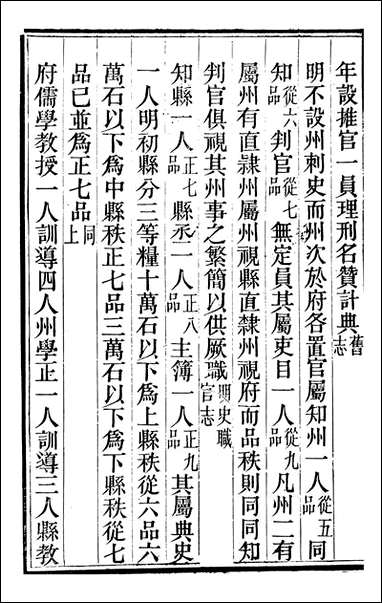 年設推官一員理刑名贊計典舊志
明不設州刺史而州次於府各置官屬知州一人從五品同
知從六品判官從七品無定員其屬吏目一人從九品凡州二有
屬州有直隸州屬州視縣直隸州視府而品秩則同同知
判官俱視其州事之繁簡以供厥職明史職官志
知縣一人正七品縣丞一人正八品主簿一人正九品其屬典史
一人明初縣分三等糧十萬石以下爲上縣秩從六品六
萬石以下爲中縣秩正七品三萬石以下爲下縣秩從七
品已並爲正七品同上
府儒學教授一人訓導四人州學正一人訓導三人縣教